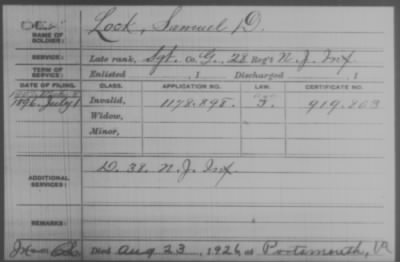 NAME OF SOLDIER: Lock, Samuel D.
SERVICE: Late rank, Sgt. Co. G, 28 Reg't N. J. Inf
TERM OF SERVICE: Enlisted , 1 Discharged , 1
DATE OF FILING. CLASS. APPLICATION NO. LAW. CERTIFICATE NO.
1896, July 1 Invalid, 1178.898. 919.863
Widow,
Minor,
ADDITIONAL SERVICES: D. 38. N. J. Inf.
REMARKS:
Died Aug 23, 1926, at Portsmouth, Va